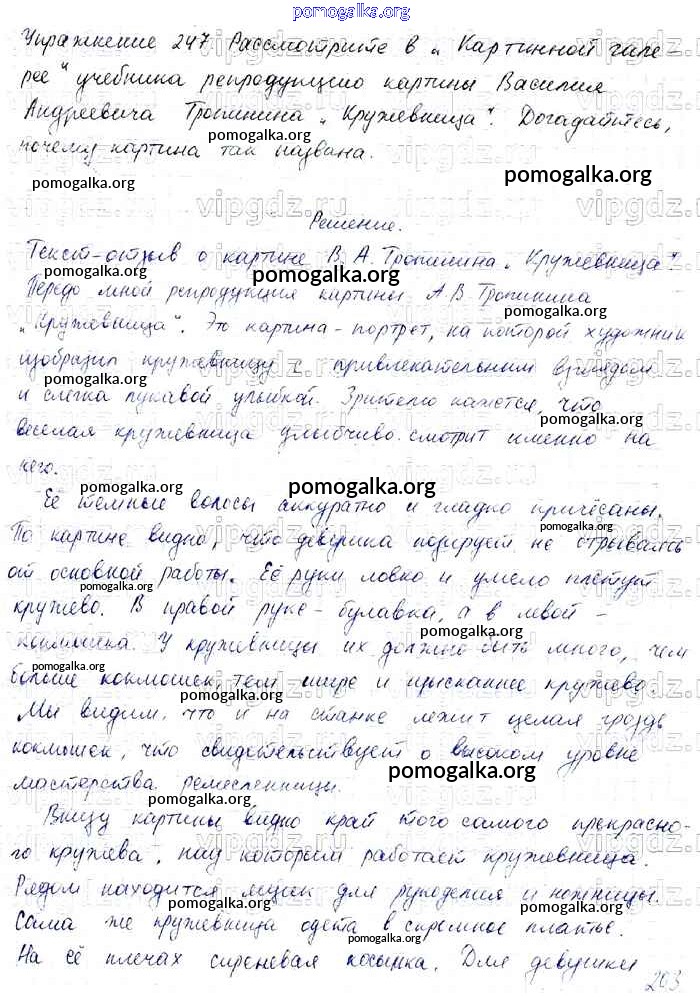 pomogalka.org
Упражнение 247. Рассмотрите в „Картинной гале-
рее" учебника репродукцию картины Василия
Андреевича Тропинина „Кружевница". Догадайтесь,
pomogalka.org
почему картина так названа.
pomogalka.org pomogalka.org
Решение.
Текст-отзыв о картине В. А. Тропинина „Кружевница".
pomogalka.org pomogalka.org
Передо мной репродукция картины А.В. Тропинина
„Кружевница". Это картина-портрет, на которой художник
изобразил кружевницу с привлекательным взглядом
pomogalka.org
и слегка лукавой улыбкой. Зрителю кажется, что
pomogalka.org
веселая кружевница улыбчиво смотрит именно на
него.
pomogalka.org pomogalka.org
Её темные волосы аккуратно и гладко причёсаны.
pomogalka.org
По картине видно, что девушка позирует не отрываясь
от основной работы. Её руки ловко и умело плетут
pomogalka.org
кружево. В правой руке - булавка, а в левой -
pomogalka.org
коклюшка. У кружевницы их должно быть много, чем
pomogalka.org
больше коклюшек, тем шире и изысканнее кружево.
pomogalka.org
Мы видим, что и на станке лежит целая гроздь
коклюшек, что свидетельствует о высоком уровне
pomogalka.org
мастерства ремесленницы.
pomogalka.org
Внизу картины видно край того самого прекрасно-
го кружева, над которым работает кружевница.
pomogalka.org
Рядом находится ящик для рукоделия и ножницы.
pomogalka.org pomogalka.org
Сама же кружевница одета в скромное платье.
pomogalka.org
На её плечах сиреневая косынка. Для девушки
203